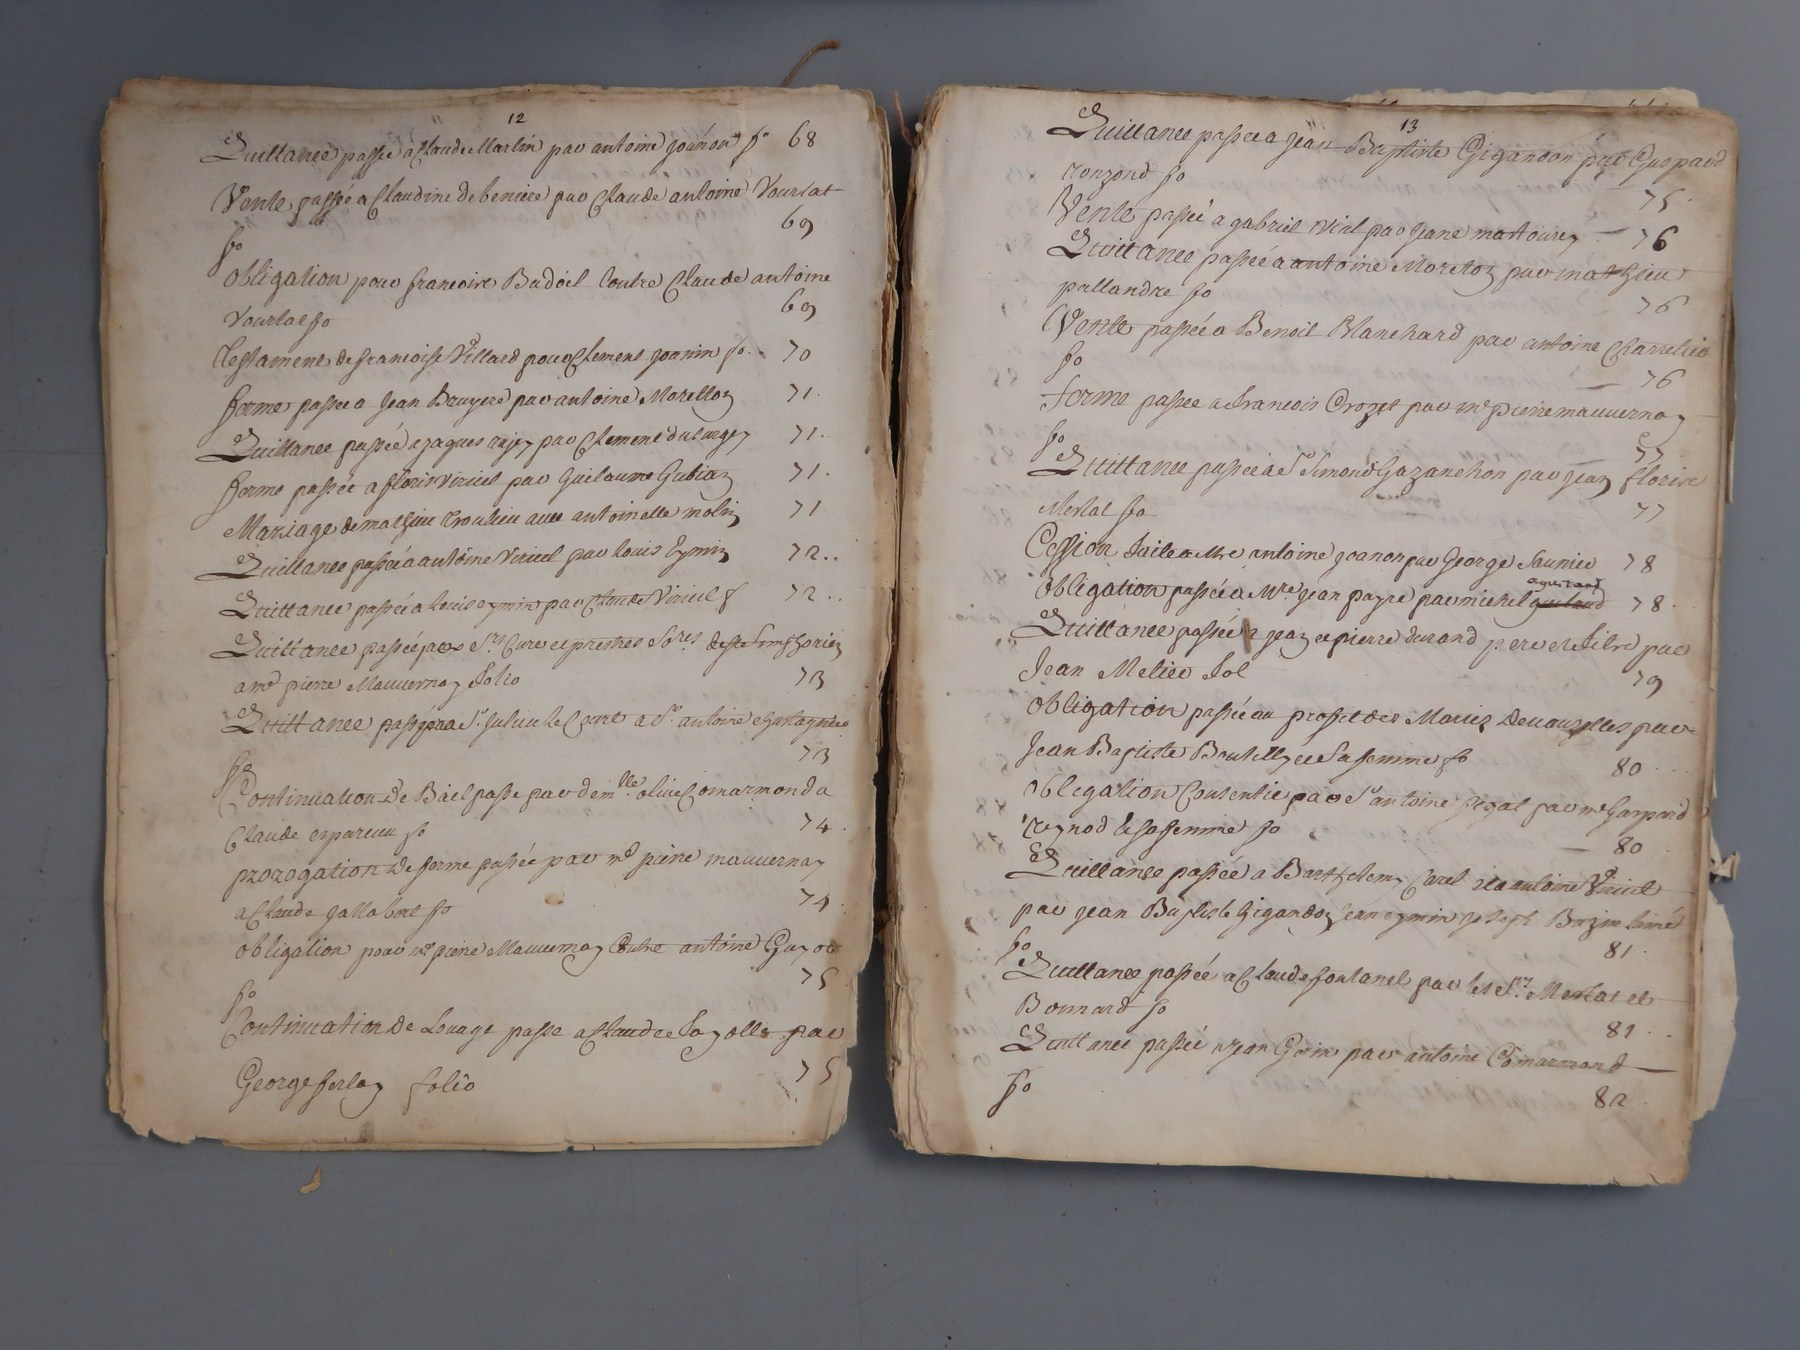 12
Quittance passée a Claude Marlin par antoine joanon fo 68
Vente passée a Claudine debeniere par Claude antoine Vourlat
fo 69
obligation pour francoise Badoil Contre Claude antoine
Vourlat fo 69
Testament de francoise Villard pour Clement joanin fo. 70
ferme passee a Jean Bruyere par antoine Morellon 71.
Quittance passée a jaques par Clement 71.
ferme passée a floris Viricel par Guilaume Gubian 71.
Mariage de mathieu avec antoinette molin 71
Quittance passée a antoine Viricel par louis Eymin 72..
Quittance passée a louis eymin par Claude Viricel f 72..
Quittance passée par Srs Cure et pretres de st Simphorien
a md pierre Mauvernay folio 73
Quittance passée a Sr antoine
fo 73
Continuation de Bail passe par demlle olive Comarmond a
Claude fo 74.
prorogation de ferme passée par md pierre mauvernay
a Claude fo 74.
obligation pour md pierre Mauvernay Contre antoine Guyot
fo 75
Continuation de Louage passe a Claude Fayolle par
George ferlay folio 75
13
Quittance passée a jean Baptiste Gigandon par Gaspard
fo 75.
Vente passée a gabriel par jeane 76
Quittance passée a antoine Moreton par mathieu
pallandre fo 76
Vente passée a Benoit Blanchard par antoine
fo 76
ferme passee a francois Crozet par md pierre mauvernay
fo 77
Quittance passée a Sr Simond Gazanchon par jean florire
Merlat fo 77
Cession faite a Mre antoine joanon par George Saunier 78
obligation passée a Mre jean payre par michel 78.
Quittance passée a jean et pierre durand pere et fils par
Jean Melier fol 79
obligation passée au proffit des Mariez par
Jean Baptiste et sa femme fo 80
oblegation Consentie par Sr antoine par md Gaspard
reynod et sa femme fo 80
Quittance passée a Barthelemy et a antoine Viricel
par jean Baptiste Gigandon jean eymin joseph
fo 81.
Quittance passée a Claude fontanel par les Srs Merlat et
Bonnard fo 81.
Quittance passée a jean par antoine Comarmond
fo 82.